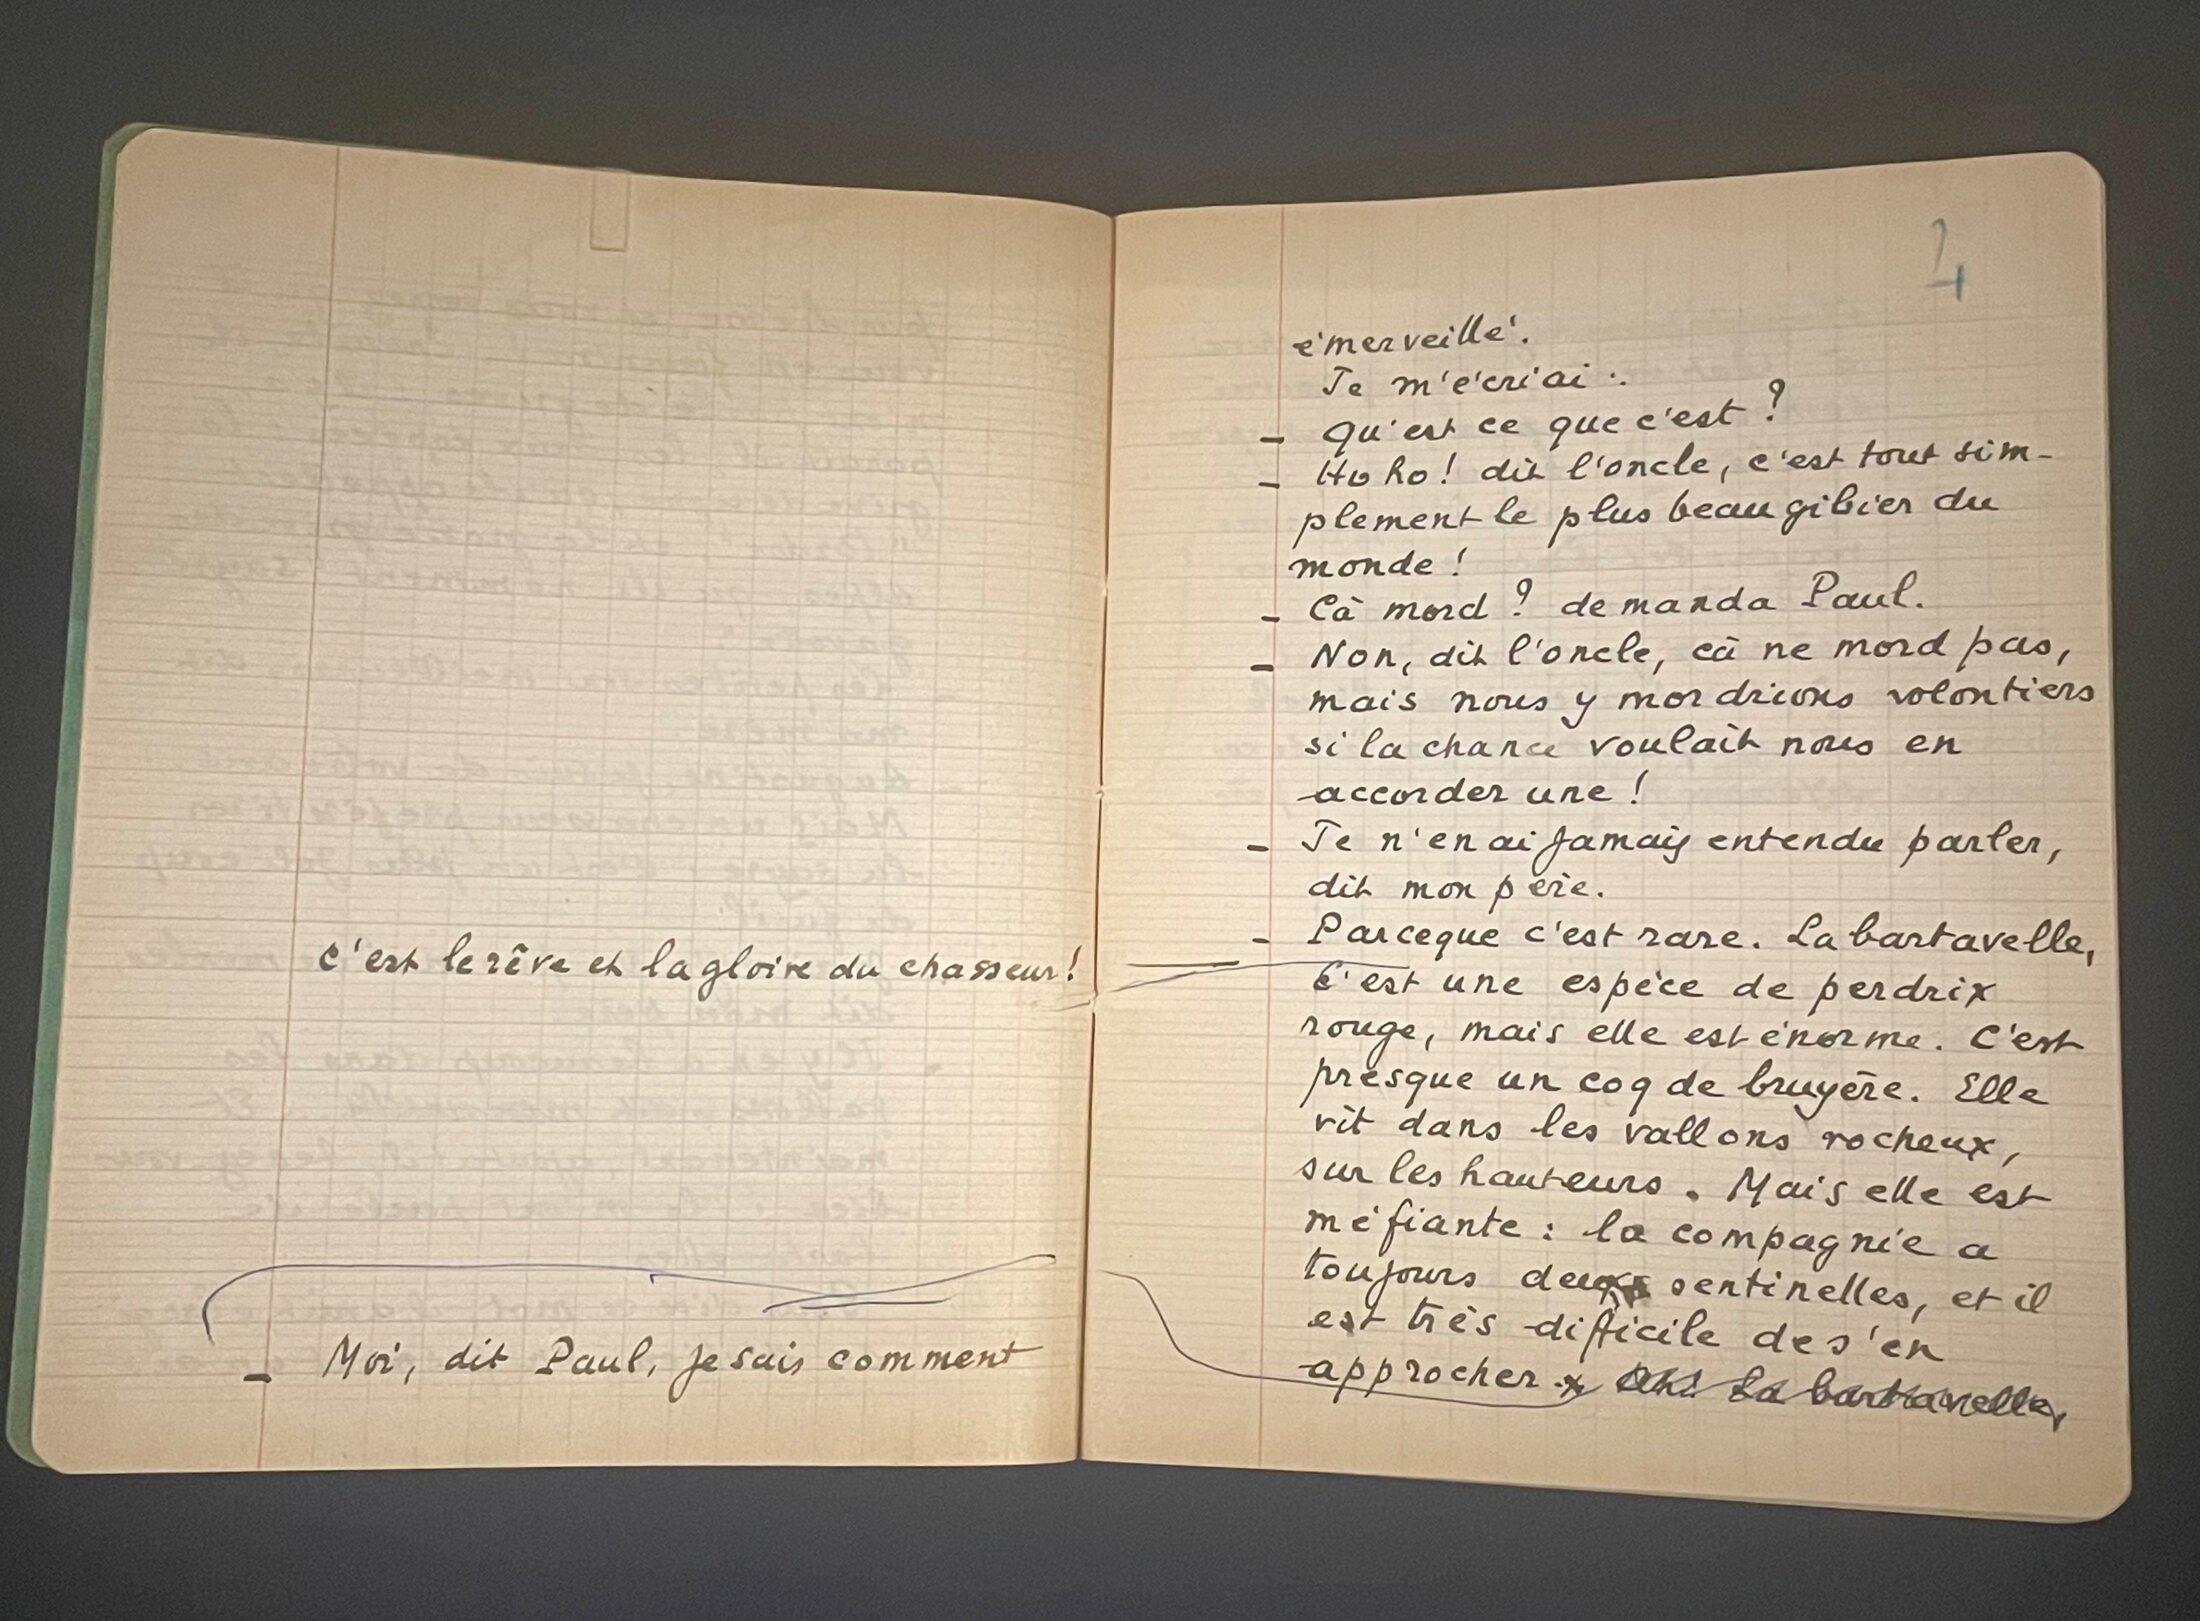 c'est le rêve et la gloire du chasseur!
- Moi, dit Paul, je sais comment
4
émerveillé.
Je m'écriai :
- Qu'est ce que c'est ?
- Ho ho! dit l'oncle, c'est tout sim-
plement le plus beau gibier du
monde !
- Cà mord ? demanda Paul.
- Non, dit l'oncle, cà ne mord pas,
mais nous y mordrions volontiers
si la chance voulait nous en
accorder une !
- Je n'en ai jamais entendu parler,
dit mon père.
- Parceque c'est rare. La bartavelle,
c'est une espèce de perdrix
rouge, mais elle est énorme. C'est
presque un coq de bruyère. Elle
vit dans les vallons rocheux,
sur les hauteurs. Mais elle est
méfiante : la compagnie a
toujours deux sentinelles, et il
est très difficile de s'en
approcher. Ah! La bartavelle,